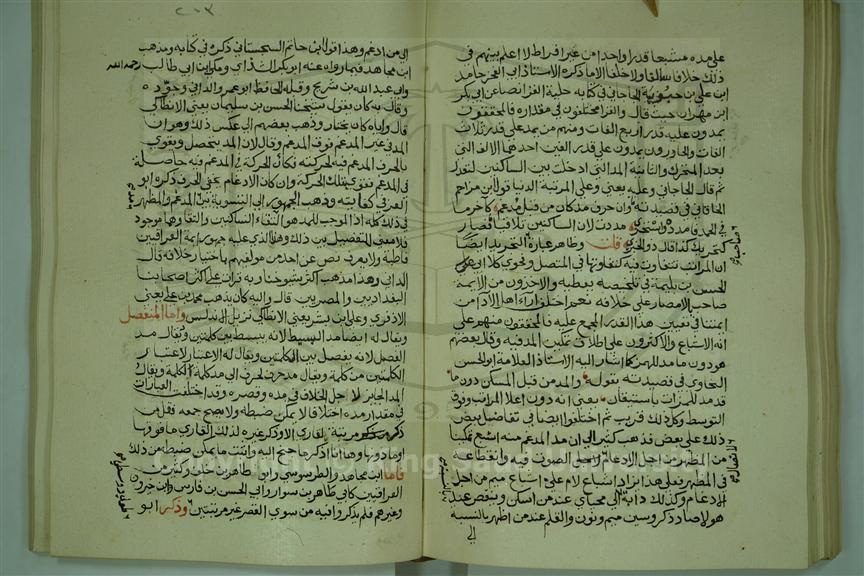 على مده مشبعا قدرا واحدا من غير افراط لا اعلم بينهم في
ذلك خلافا سالفا ولا خلفا الا ما ذكره الاستاذ ابو الفخر حامد
ابن علي بن حسنويه الجاجاني في كتابه حلية القرا نصا عن ابي بكر
ابن مهران حيث قال والقرا مختلفون في مقداره فالمحققون
يمدون عليه قدر اربع الفات ومنهم من يمد على قدر ثلاث
الفات والحادرون يمدون على قدر الفين احدهما الالف التي
بعد المتحرك والثانية المدة التي ادخلت بين الساكنين لتعدل
ثم قال الجاجاني وعليه يعني وعلى المرتبة الدنيا قول ابن مزاحم
الخاقاني في قصيدته وان حرف مد كان من قبل مدغم كآخر ما
في الحمد فامدده واستجر مددت لان الساكنين تلاقيا فصار
كتحريك كذا قال ذو الخبر قلت وظاهر عبارة التجريد ايضا
ان المراتب تتفاوت فيه كتفاوتها في المتصل وفحوى كلام ابي علي
الحسن بن بليمة في تلخيصه يعطيه والاخرون من الايمة
بالامصار على خلافه نعم اختلفت اراء اهل الاداء من
ايمتنا في تعيين هذا القدر المجمع عليه فالمحققون منهم على
انه الاشباع والاكثرون على اطلاق تمكين المد فيه وقال بعضهم
هو دون ما مد للهمز كما اشار اليه الاستاذ العلامة ابو الحسن
السخاوي في قصيدته بقوله والمد من قبل المسكن دون ما
قد مد للهمزات باستيقان يعني انه دون اعلا المراتب وفوق
التوسط وكل ذلك قريب ثم اختلفوا ايضا في تفاضل بعض
ذلك على بعض فذهب كثير الى ان مد المدغم منه اشبع تمكينا
من المظهر من اجل الادغام لاتصال الصوت فيه وانقطاعه
في المظهر فعلى هذا يزاد اشباع لام على اشباع ميم من اجل
الادغام وكذلك دابة الى محياي عند من اسكن وينقص عند
هولاء صاد ذكر وسين ميم ونون والقلم عند من اظهر بالنسبة
الى
الى من ادغم وهذا قول ابن حاتم السجستاني ذكره في كتابه ومذهب
ابن مجاهد فيما رواه عنه ابو بكر الشذاي ومكي بن ابي طالب رحمه الله
وابي عبد الله بن شريح وقبله الحافظ ابو عمرو الداني وجوده
وقال به كان يقول شيخنا الحسن بن سليمان يعني الانطاكي
قال واياه كان يختار وذهب بعضهم الى عكس ذلك وهو ان
المد في غير المدغم فوق المدغم وقال لان المد يتحصل ويقوى
بالحرف المدغم فيه لحركته فكان الحركة في المدغم فيه حاصلة
في المدغم فقوي بتلك الحركة وان كان الادغام يخفي الحرف ذكره ابو
العز في كفايته وذهب الجمهور الى التسوية بين المدغم والمظهر
في ذلك كله اذ الموجب للمد هو التقاء الساكنين والتقاوها موجود
فلا معنى للتفصيل بين ذلك وهذا الذي عليه جمهور ايمة العراقيين
قاطبة ولا يعرف نص عن احد من مولفيهم باختيار خلافه قال
الداني وهذا مذهب اكثر شيوخنا وبه قرات على اكثر اصحابنا
البغداديين والمصريين قال واليه كان يذهب محمد بن علي يعني
الاذفوي وعلي ابن بشر يعني الانطاكي نزيل الاندلس واما المنفصل
ويقال له ايضا مد البسيط لانه يبسط بين كلمتين ويقال مد
الفصل لانه يفصل بين الكلمتين ويقال له الاعتبار لاعتبار
الكلمتين من كلمة ويقال مد حرف لحرف اي مد كلمة لكلمة ويقال
المد الجايز لاجل الخلاف في مده وقصره وقد اختلفت العبارات
في مقدار مده اختلافا لا يمكن ضبطه ولا يصح جمعه فقل من
ذكر مرتبة لقاري الا وذكر غيره لذلك القاري ما فوقها
او ما دونها وها انا اذكر ما جنح اليه واثبت ما يمكن ضبطه من ذلك
فاما ابن مجاهد والطرسوسي وابو طاهر بن خلف وكثير من
العراقيين كابي طاهر بن سوار وابي الحسن بن فارس وابن خيرون
وغيرهم فلم يذكروا فيه من سوى القصر غير مرتبتين وذكر ابو